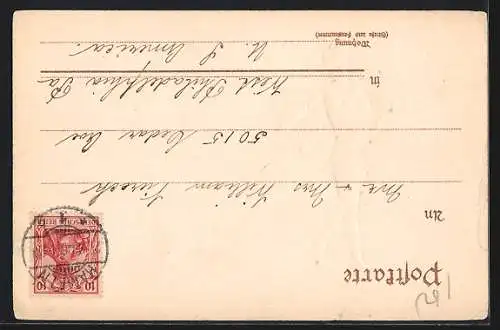 Postkarte
An
Mr & Mrs William
5015 Cedar Ave
in West Philadelphia Pa
U. S. America.
Wohnung
(Straße und Hausnummer)
10 10
DEUTSCHES REICH